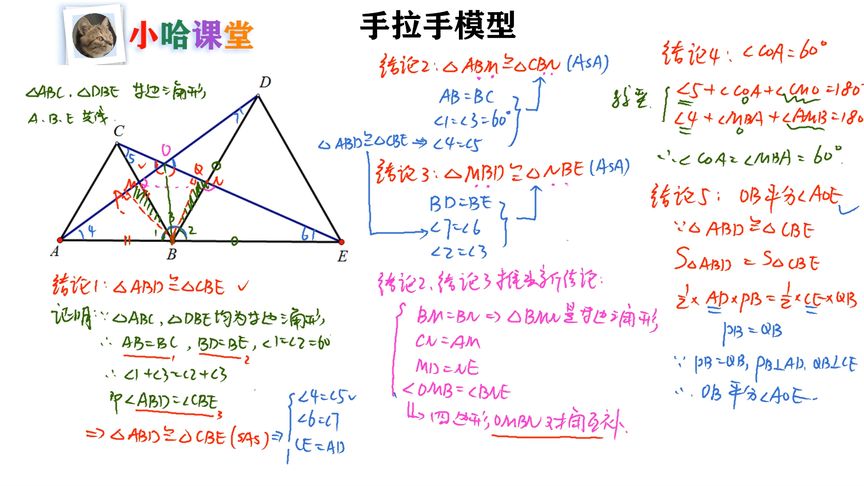 小哈课堂
手拉手模型
△ABC、△DBE 等边三角形,
A、B、E 共线.
D
C
O
5
7
Q
M
N
P
4
3
1
2
6
A
B
E
结论1: △ABD≌△CBE ✓
证明: ∵△ABC、△DBE均为等边三角形,
∴ AB=BC, BD=BE, ∠1=∠2=60°
1
2
∴ ∠1+∠3=∠2+∠3
即∠ABD=∠CBE
3
⇒ △ABD≌△CBE (SAS) ⇒
∠4=∠5
∠6=∠7
CE=AD
结论2: △ABM≌△CBN (ASA)
AB=BC
∠1=∠3=60°
△ABD≌△CBE ⇒ ∠4=∠5
结论3: △MBD≌△NBE (ASA)
BD=BE
∠7=∠6
∠2=∠3
结论2、结论3推出新结论:
BM=BN ⇒ △BMN是等边三角形,
CN=AM
MD=NE
∠OMB=∠BNE
四边形OMBN对角互补.
结论4: ∠COA=60°
∠5+∠COA+∠CMO=180
∠4+∠MBA+∠AMB=180
∴∠COA=∠MBA=60°.
结论5: OB平分∠AOE ✓
∵△ABD≌△CBE
S△ABD = S△CBE
½×AD×PB=½×CE×QB
PB=QB
∵ PB=QB, PB⊥AD, QB⊥CE
∴ OB平分∠AOE.